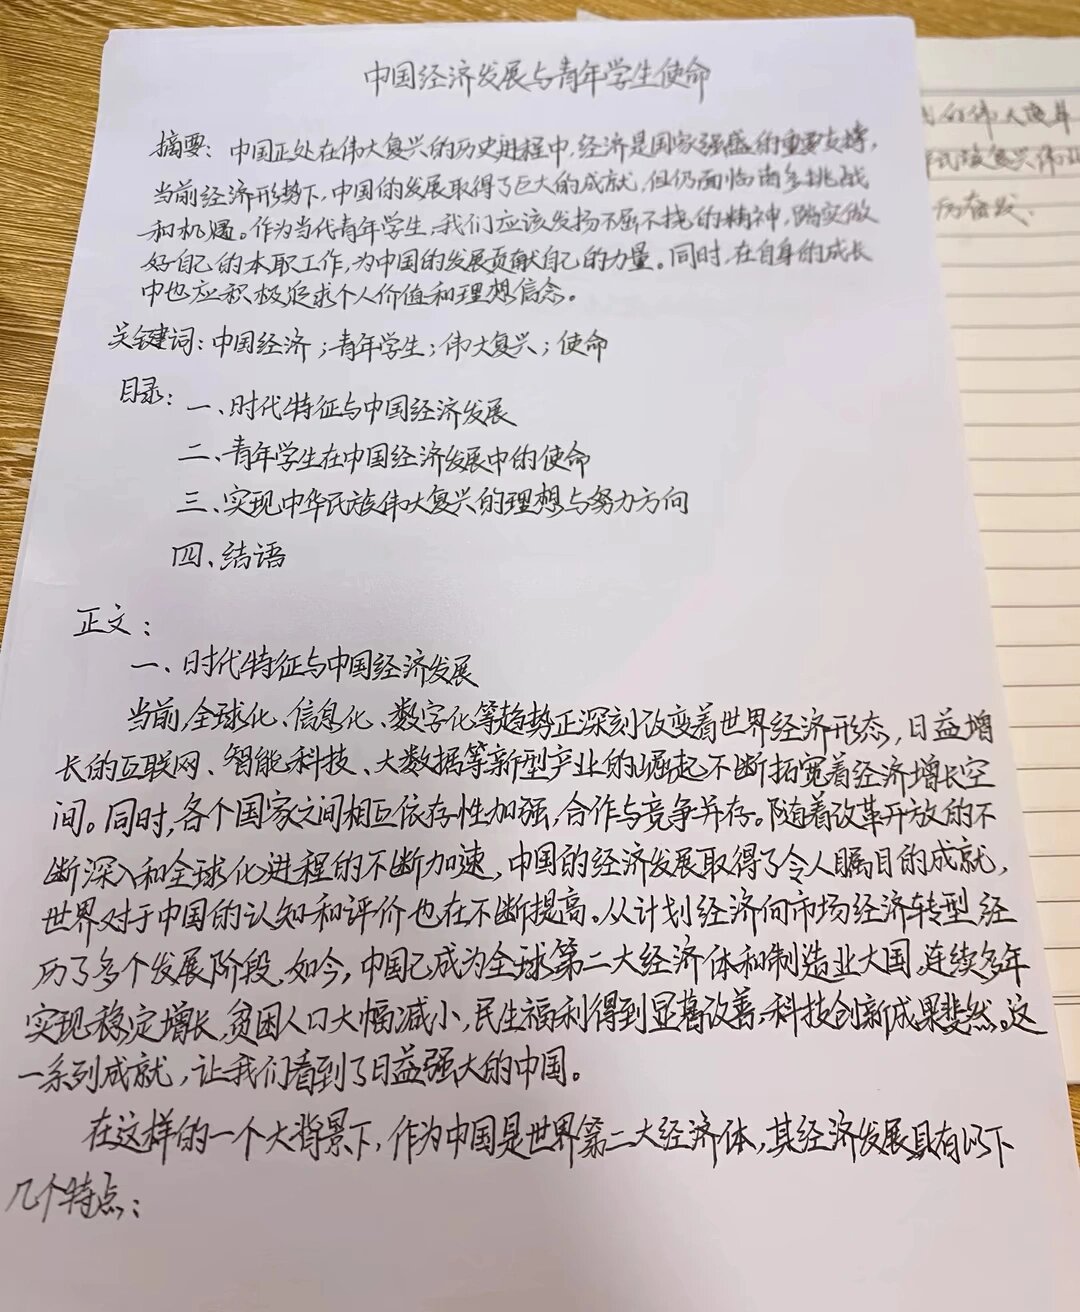 中国经济发展与青年学生使命
摘要：中国正处在伟大复兴的历史进程中，经济是国家强盛的重要支撑，
当前经济形势下，中国的发展取得了巨大的成就，但仍面临诸多挑战
和机遇。作为当代青年学生，我们应该发扬不屈不挠的精神，踏实做
好自己的本职工作，为中国的发展贡献自己的力量。同时，在自身的成长
中也应积极追求个人价值和理想信念。
关键词：中国经济；青年学生；伟大复兴；使命
目录：一、时代特征与中国经济发展
二、青年学生在中国经济发展中的使命
三、实现中华民族伟大复兴的理想与努力方向
四、结语
正文：
一、时代特征与中国经济发展
当前，全球化、信息化、数字化等趋势正深刻改变着世界经济形态，日益增
长的互联网、智能科技、大数据等新型产业的崛起不断拓宽着经济增长空
间。同时，各个国家之间相互依存性加强，合作与竞争并存。随着改革开放的不
断深入和全球化进程的不断加速，中国的经济发展取得了令人瞩目的成就，
世界对于中国的认知和评价也在不断提高。从计划经济向市场经济转型，经
历了多个发展阶段。如今，中国已成为全球第二大经济体和制造业大国，连续多年
实现稳定增长，贫困人口大幅减小，民生福利得到显著改善，科技创新成果斐然。这
一系列成就，让我们看到了日益强大的中国。
在这样的一个大背景下，作为中国是世界第二大经济体，其经济发展具有以下
几个特点：